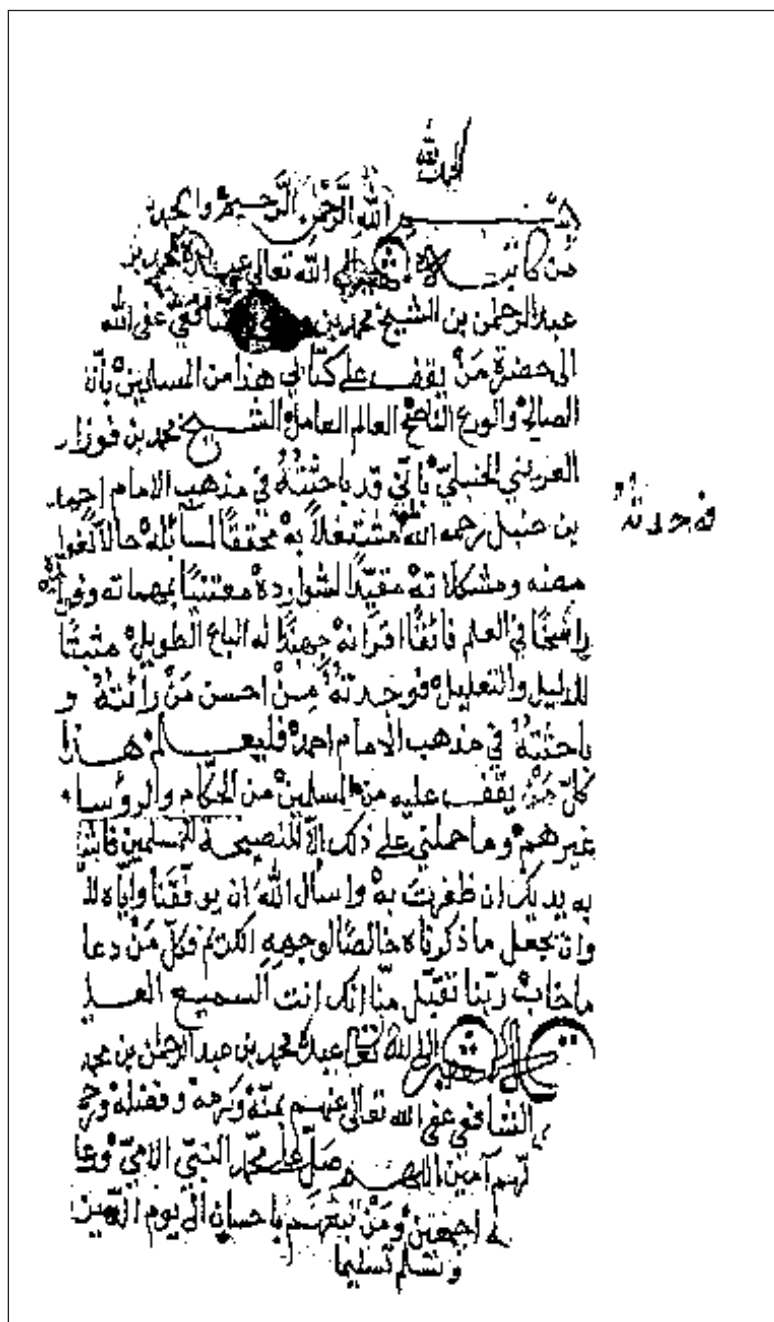 الحمد لله
بسم الله الرحمن الرحيم والحمد لله
من كاتبه الفقير الى الله تعالى عبده محمد بن
عبد الرحمن بن الشيخ محمد بن الشافعي عفى الله
الى حضرة مَنْ يقف على كتابي هذا من المسلمين بأنّ
الصالح والورع الناصح العالم العامل الشيخ محمد بن فوزان
العريني الحنبليّ بأنّي قد باحثتُهُ في مذهب الامام احمد
بن حنبل رحمه الله مشتغلاً به محققًا لمسآئله حالاًّ لغوا
مضه ومشكلاته مقيّدًا لشوارده معتنيًا بمهماته
فوجدتُهُ
راسخًا في العلم فائقًا اقرانه جهبذًا له الباع الطويل مثبتًا
للدليل والتعليل فوجدتُهُ مِنْ احسن مَنْ رأيتُهُ و
باحثتُهُ في مذهب الامام احمد فليعلم هذا
كلّ مَنْ يقف عليه من المسلمين من الحكّام والرؤساء
غيرهم وما حملني على ذلك الاّ النصيحة للمسلمين
به يديك ان ظفرتَ به واسأل الله ان يوفّقنا وايّاه
وان يجعل ما ذكرناه خالصًا لوجهه الكريم فكلّ مَنْ دعا
ما خاب ربّنا تقبّل منّا انك انت السميع العليم
قال الفقير الى الله تعالى عبده محمد بن عبد الرحمن بن محمد
الشافعي عفى الله تعالى عنهم بمنّه وكرمه وفضله
آمين اللهم صلّ على محمّد النبيّ الاميّ وعا
له اجمعين ومَنْ تبعهم باحسان الى يوم الدين
وسلم تسليما